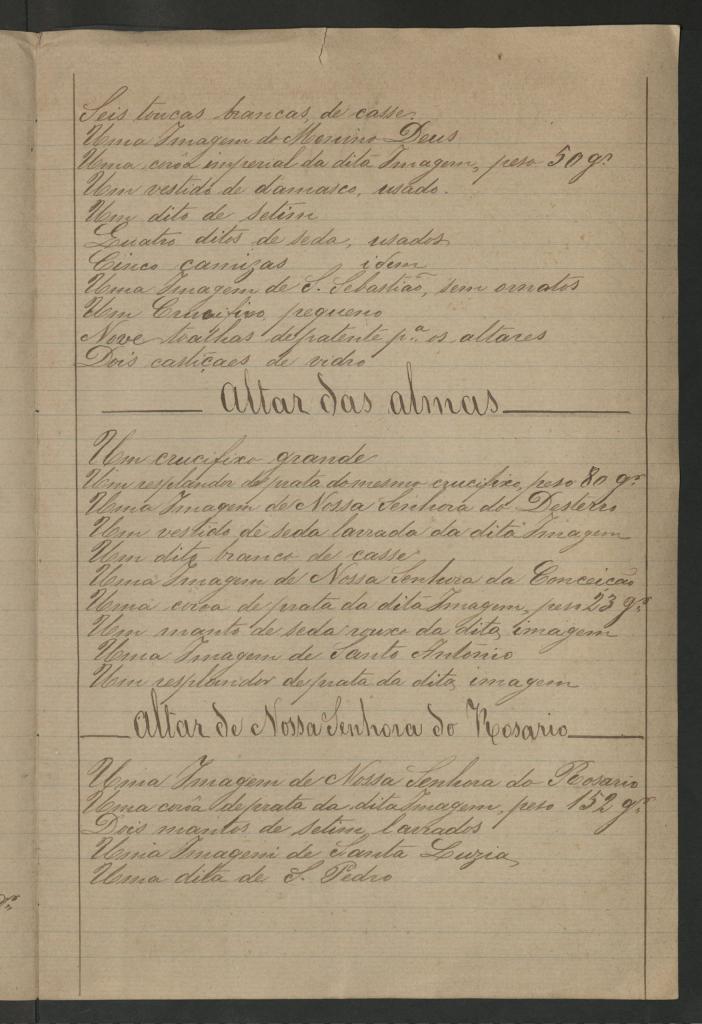 Seis toucas brancas, de casse.
Uma Imagem do Menino Deus
Uma corôa imperial da dita Imagem, peso 50 gr.
Um vestido de damasco, usado.
Um dito de setim
Quatro ditos de seda, usados
Cinco camizas idem
Uma Imagem de S. Sebastião, sem ornatos
Um Crucifixo, pequeno
Nove toalhas de patente pa. os altares
Dois castiçaes de vidro
Altar das almas
Um crucifixo grande
Um resplandor de prata do mesmo crucifixo, peso 80 gr.
Uma Imagem de Nossa Senhora do Desterro
Um vestido de seda lavrada da dita Imagem
Um dito branco de casse
Uma Imagem de Nossa Senhora da Conceição
Uma corôa de prata da dita Imagem, peso 23 gr.
Um manto de seda rouxo da dita imagem
Uma Imagem de Santo Antonio
Um resplandor de prata da dita imagem
Altar de Nossa Senhora do Rosario
Uma Imagem de Nossa Senhora do Rosario
Uma corôa de prata da dita Imagem, peso 152 gr.
Dois mantos de setim lavrados
Uma Imagem de Santa Luzia
Uma dita de S. Pedro